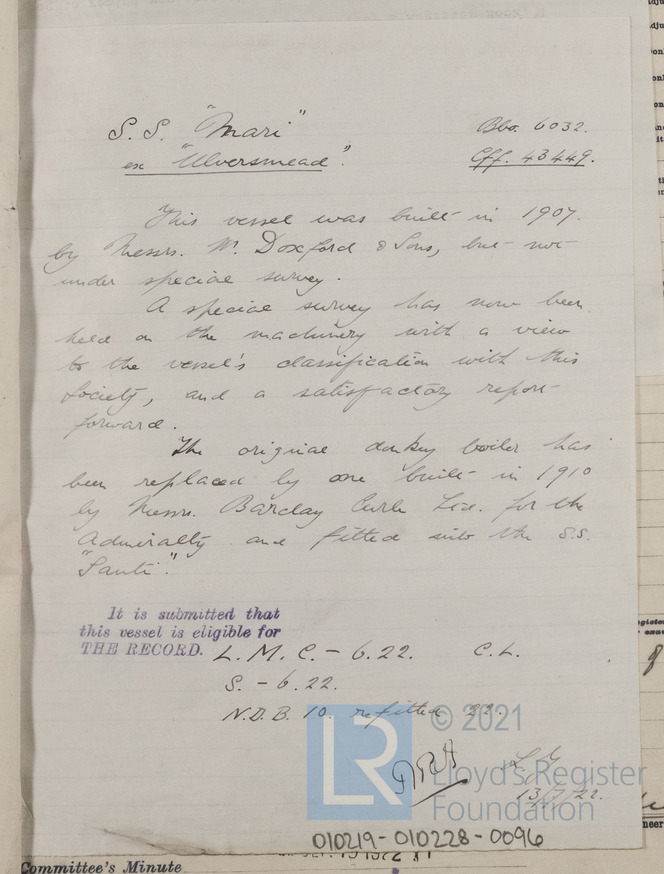 S. S. "Mari"
Bbo. 6032.
ex "Ulversmead".
Gff. 43449.
This vessel was built in 1907.
by Messrs. W. Doxford & Sons, but not
under special survey.
A special survey has now been
held on the machinery with a view
to the vessel's classification with this
Society, and a satisfactory report
forward.
The original donkey boiler has
been replaced by one built in 1910
by Messrs. Barclay Curle Ltd. for the
Admiralty and fitted into the S.S.
"Santi".
It is submitted that
this vessel is eligible for
THE RECORD.
L. M. C. - 6.22. C.L.
S. - 6.22.
N.D.B. 10. refitted 22.
© 2021
LR
Lloyd's Register
Foundation
13/7/22.
010219-010228-0096
Committee's Minute